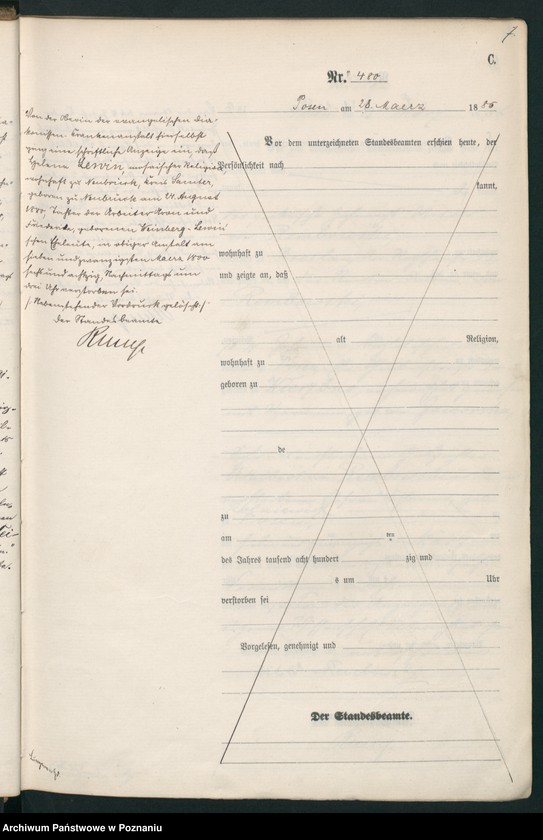 7
C.
Nr. 480.
Posen am 28. Maerz 1886
Von der Oberin der evangelischen Dia-
konissen Krankenanstalt hierselbst
ging eine schriftliche Anzeige ein, daß
Helene Lewin, mosaischer Religion
wohnhaft zu Neubrück, Kreis Samter,
geboren zu Neubrück am August
Tochter der Arbeiter Aron und
Friederike, geborenen Weinberg-Lewin
schen Eheleute, in obiger Anstalt am
sieben und zwanzigsten Maerz 1800
sechs und achtzig, Nachmittags um
drei Uhr verstorben sei.
/ Nebenstehender Vordruck gelöscht /
der Standesbeamte
Vor dem unterzeichneten Standesbeamten erschien heute, der
Persönlichkeit nach
kannt,
wohnhaft zu
und zeigte an, daß
alt Religion,
wohnhaft zu
geboren zu
de
zu
am ten
des Jahres tausend acht hundert zig und
s um Uhr
verstorben sei
Vorgelesen, genehmigt und
Der Standesbeamte.
Archiwum Państwowe w Poznaniu